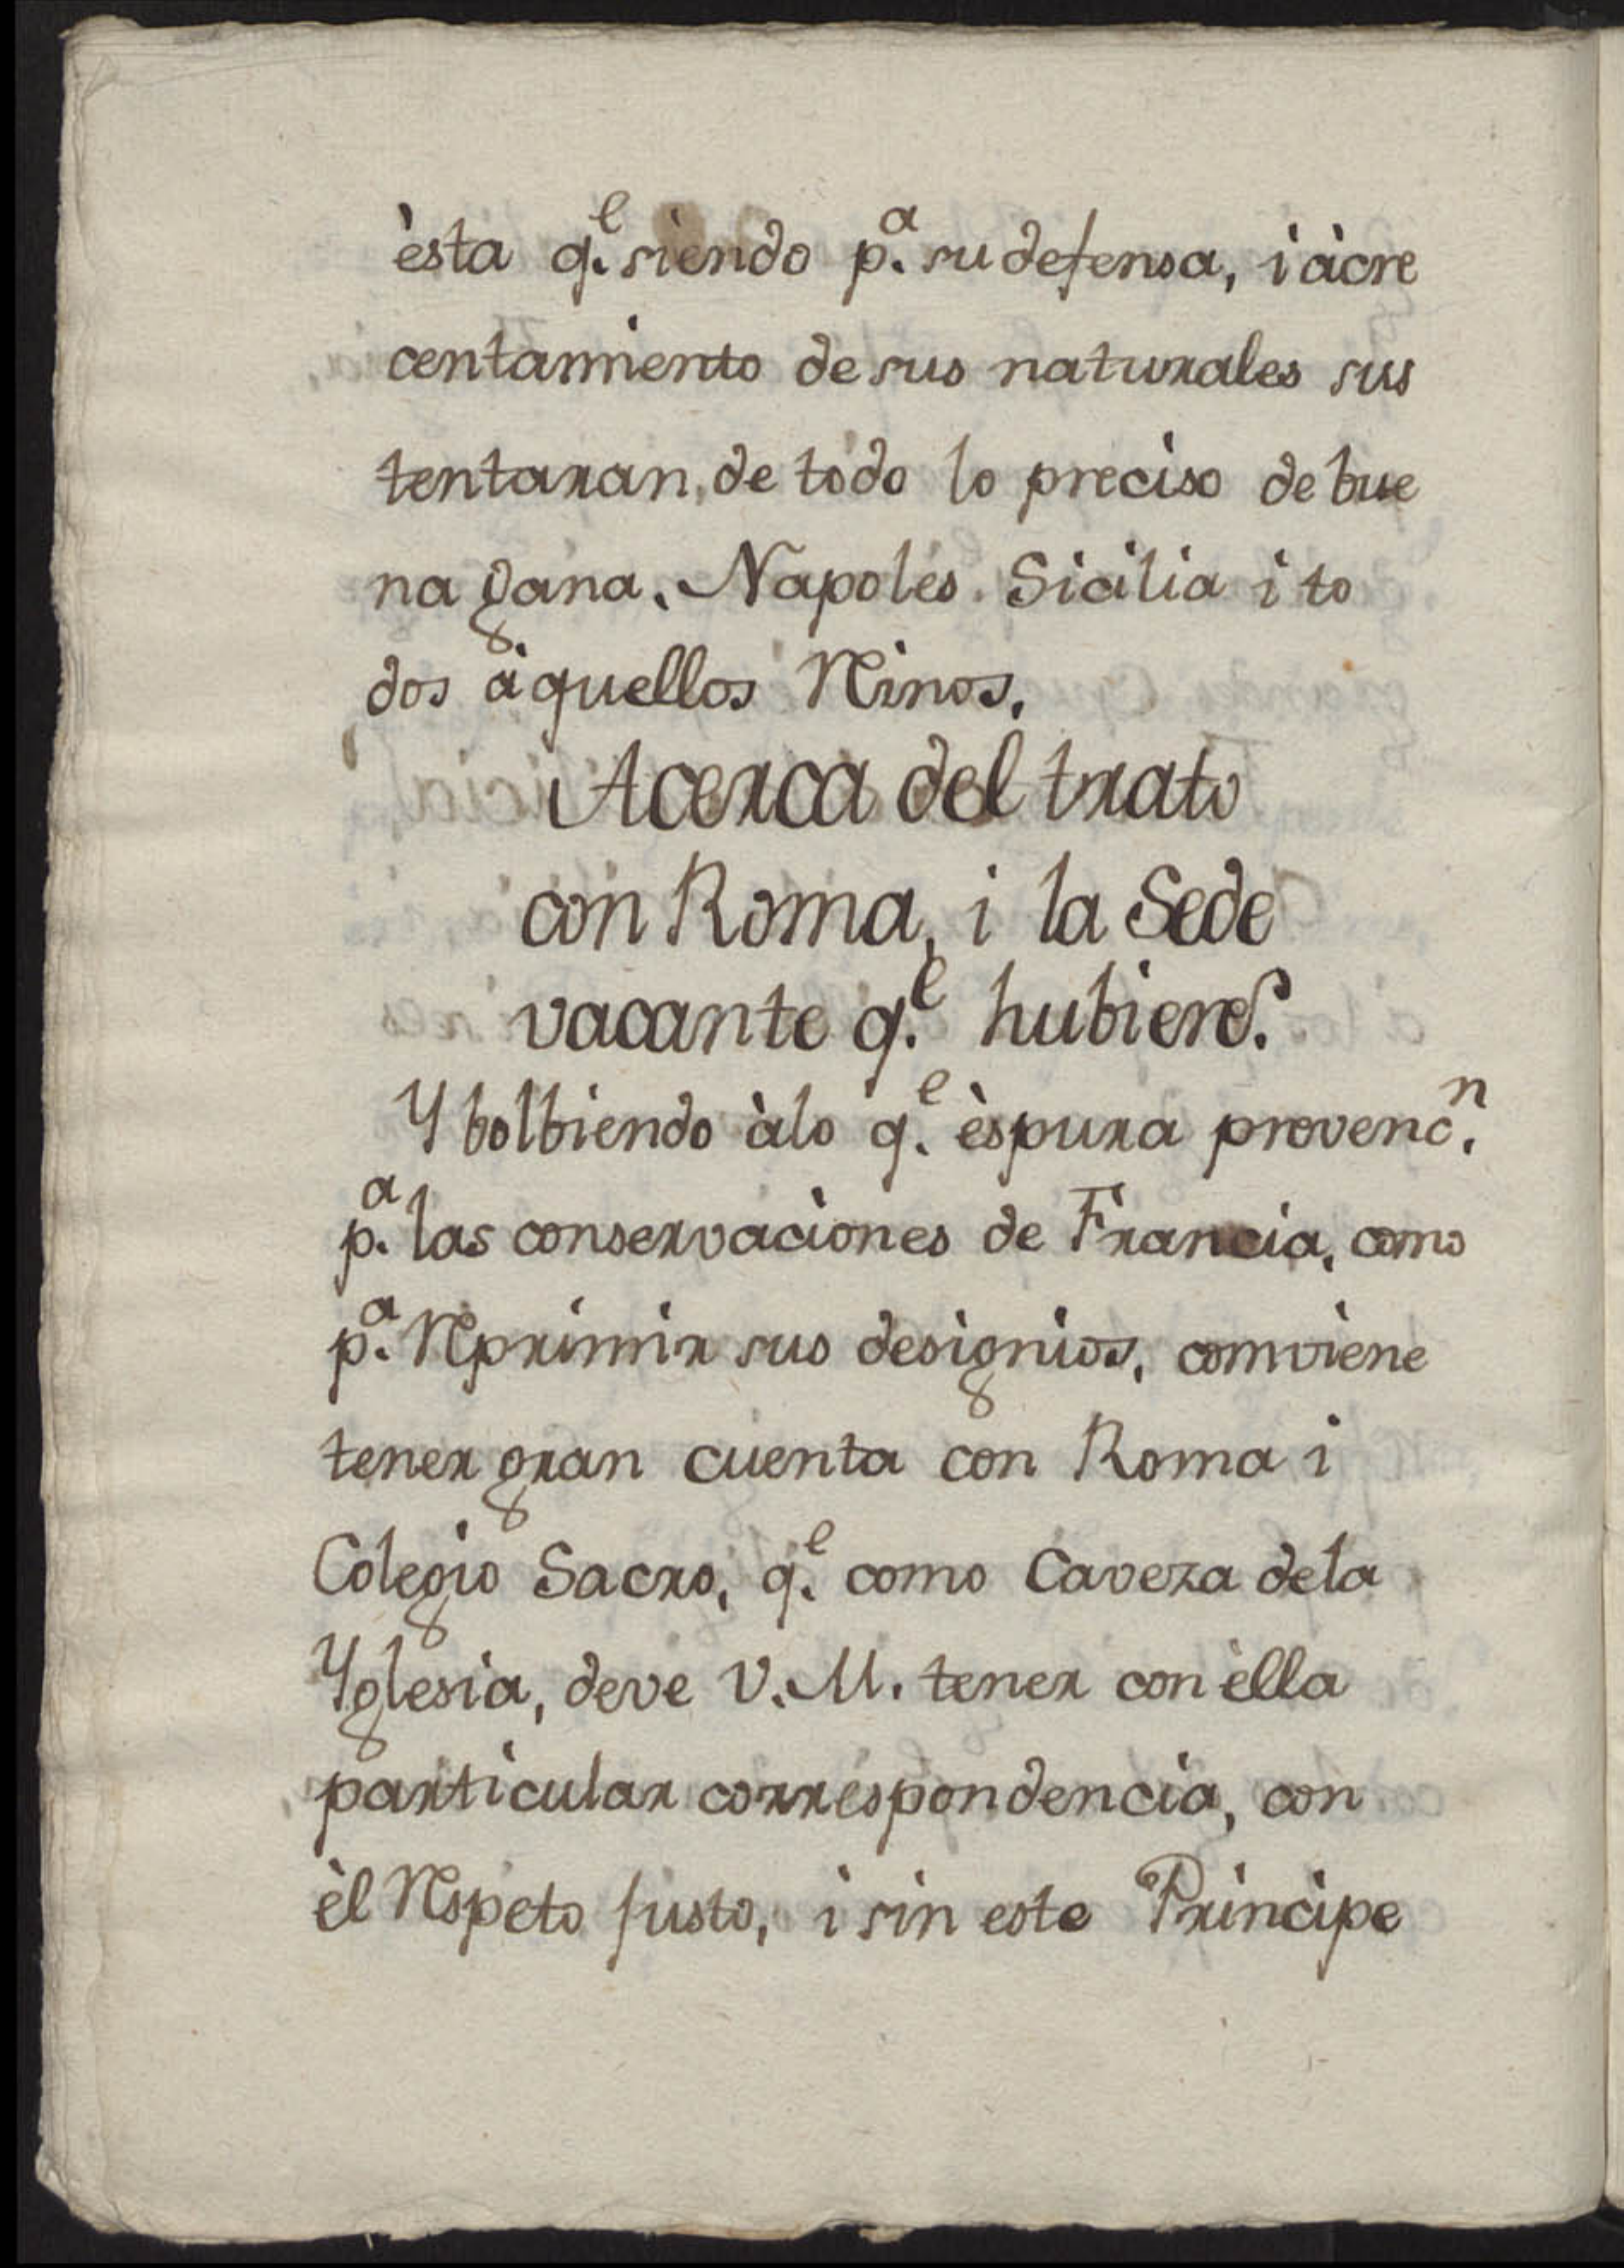 èsta q.ᵉ siendo p.ᵃ su defensa, i àcre
centamiento de sus naturales sus
tentaran, de todo lo preciso de bue
na gana. Napoles. Sicilia i to
dos àquellos Reinos.
Acerca del trato
con Roma, i la Sede
vacante q.ᵉ hubiere.
Y bolbiendo àlo q.ᵉ ès pura prevenc.ⁿ
p.ᵃ las conservaciones de Francia, como
p.ᵃ Reprimir sus designios, comviene
tener gran cuenta con Roma i
Colegio Sacro, q.ᵉ como Caveza dela
Yglesia, deve V. M. tener con èlla
particular correspondencia, con
èl Respeto justo, i sin este Principe